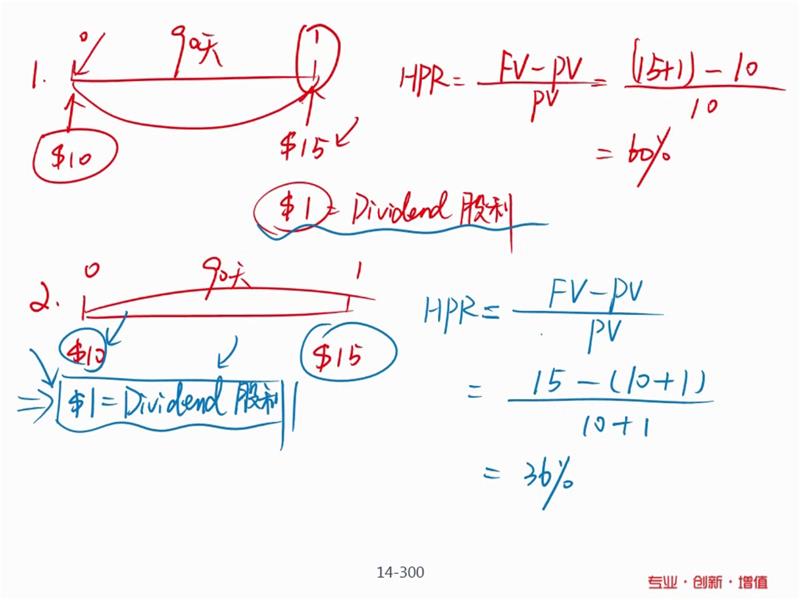 1. 0 90天 1
$10 $15
HPR = (FV-PV)/PV = ((15+1)-10)/10
= 60%
$1 = Dividend 股利
2. 0 90天 1
$10 $15
⇒ $1 = Dividend 股利
HPR = (FV-PV)/PV
= (15-(10+1))/(10+1)
= 36%
14-300
专业·创新·增值